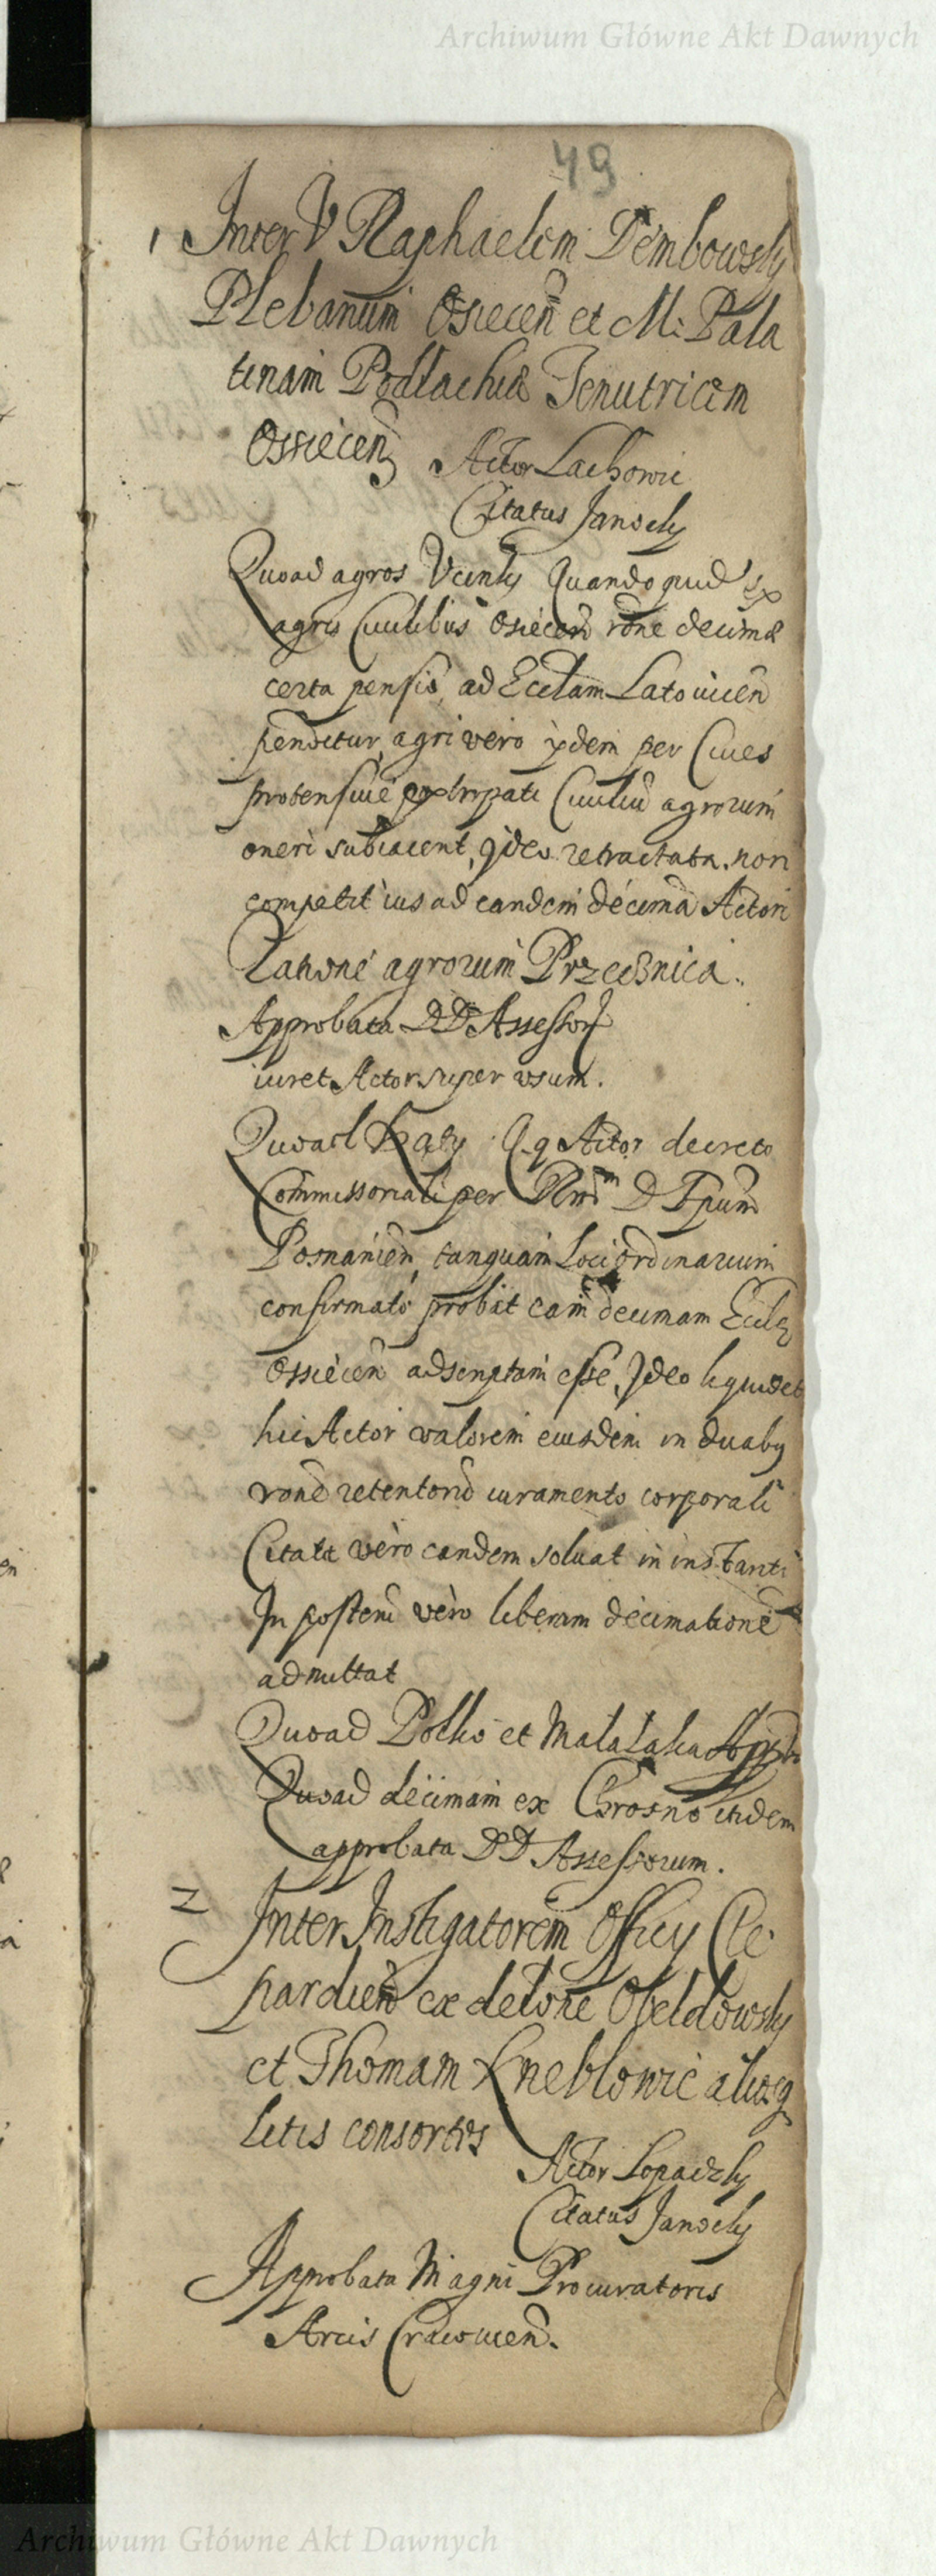 Archiwum Główne Akt Dawnych
49
1 Inter V Raphaelem Dembowsky
Plebanum Osiecen et M: Pala
tinam Podlachiæ Tenutricem
Ossiecen Actor Lachowic
Citatus Janocky
Quoad agros Quandoquid Ex
agris Ciuilibus Osiecen rone decimæ
certa pensio ad Ecclam Latouicen
penditur, agri vero per Ciues
Ciuiliu agrorum
oneri subiacent, Ideo retractata. non
competit ius ad eandem decimã Actori
Ratione agrorum
Approbata DD Assessor
iuret Actor super vsum.
Quoad Actor decreto
Commissoriali per Rmd D Epum
Posnanien, tanquam Loci Ordinarium
confirmato probat eam decimam Eccle
Ossiecen adscriptam esse, Ideo liquidet
hic Actor valorem eiusdem in duabq
rone retentorũ iuramento corporali
Citatt vero eandem soluat in instanti
In posterũ vero liberam decimationē
admittat
Quoad et
Quoad decimam ex Chrosno itidem
approbata DD Assessorum.
2 Inter Instigatorem Officy Cle
pardien ex delõne
et Thomam Kneblowic aliosq
litis consortes
Actor Lopacky
Citatus Janocky
Approbata Magni Procuratoris
Arcis Cracouien.
Archiwum Główne Akt Dawnych